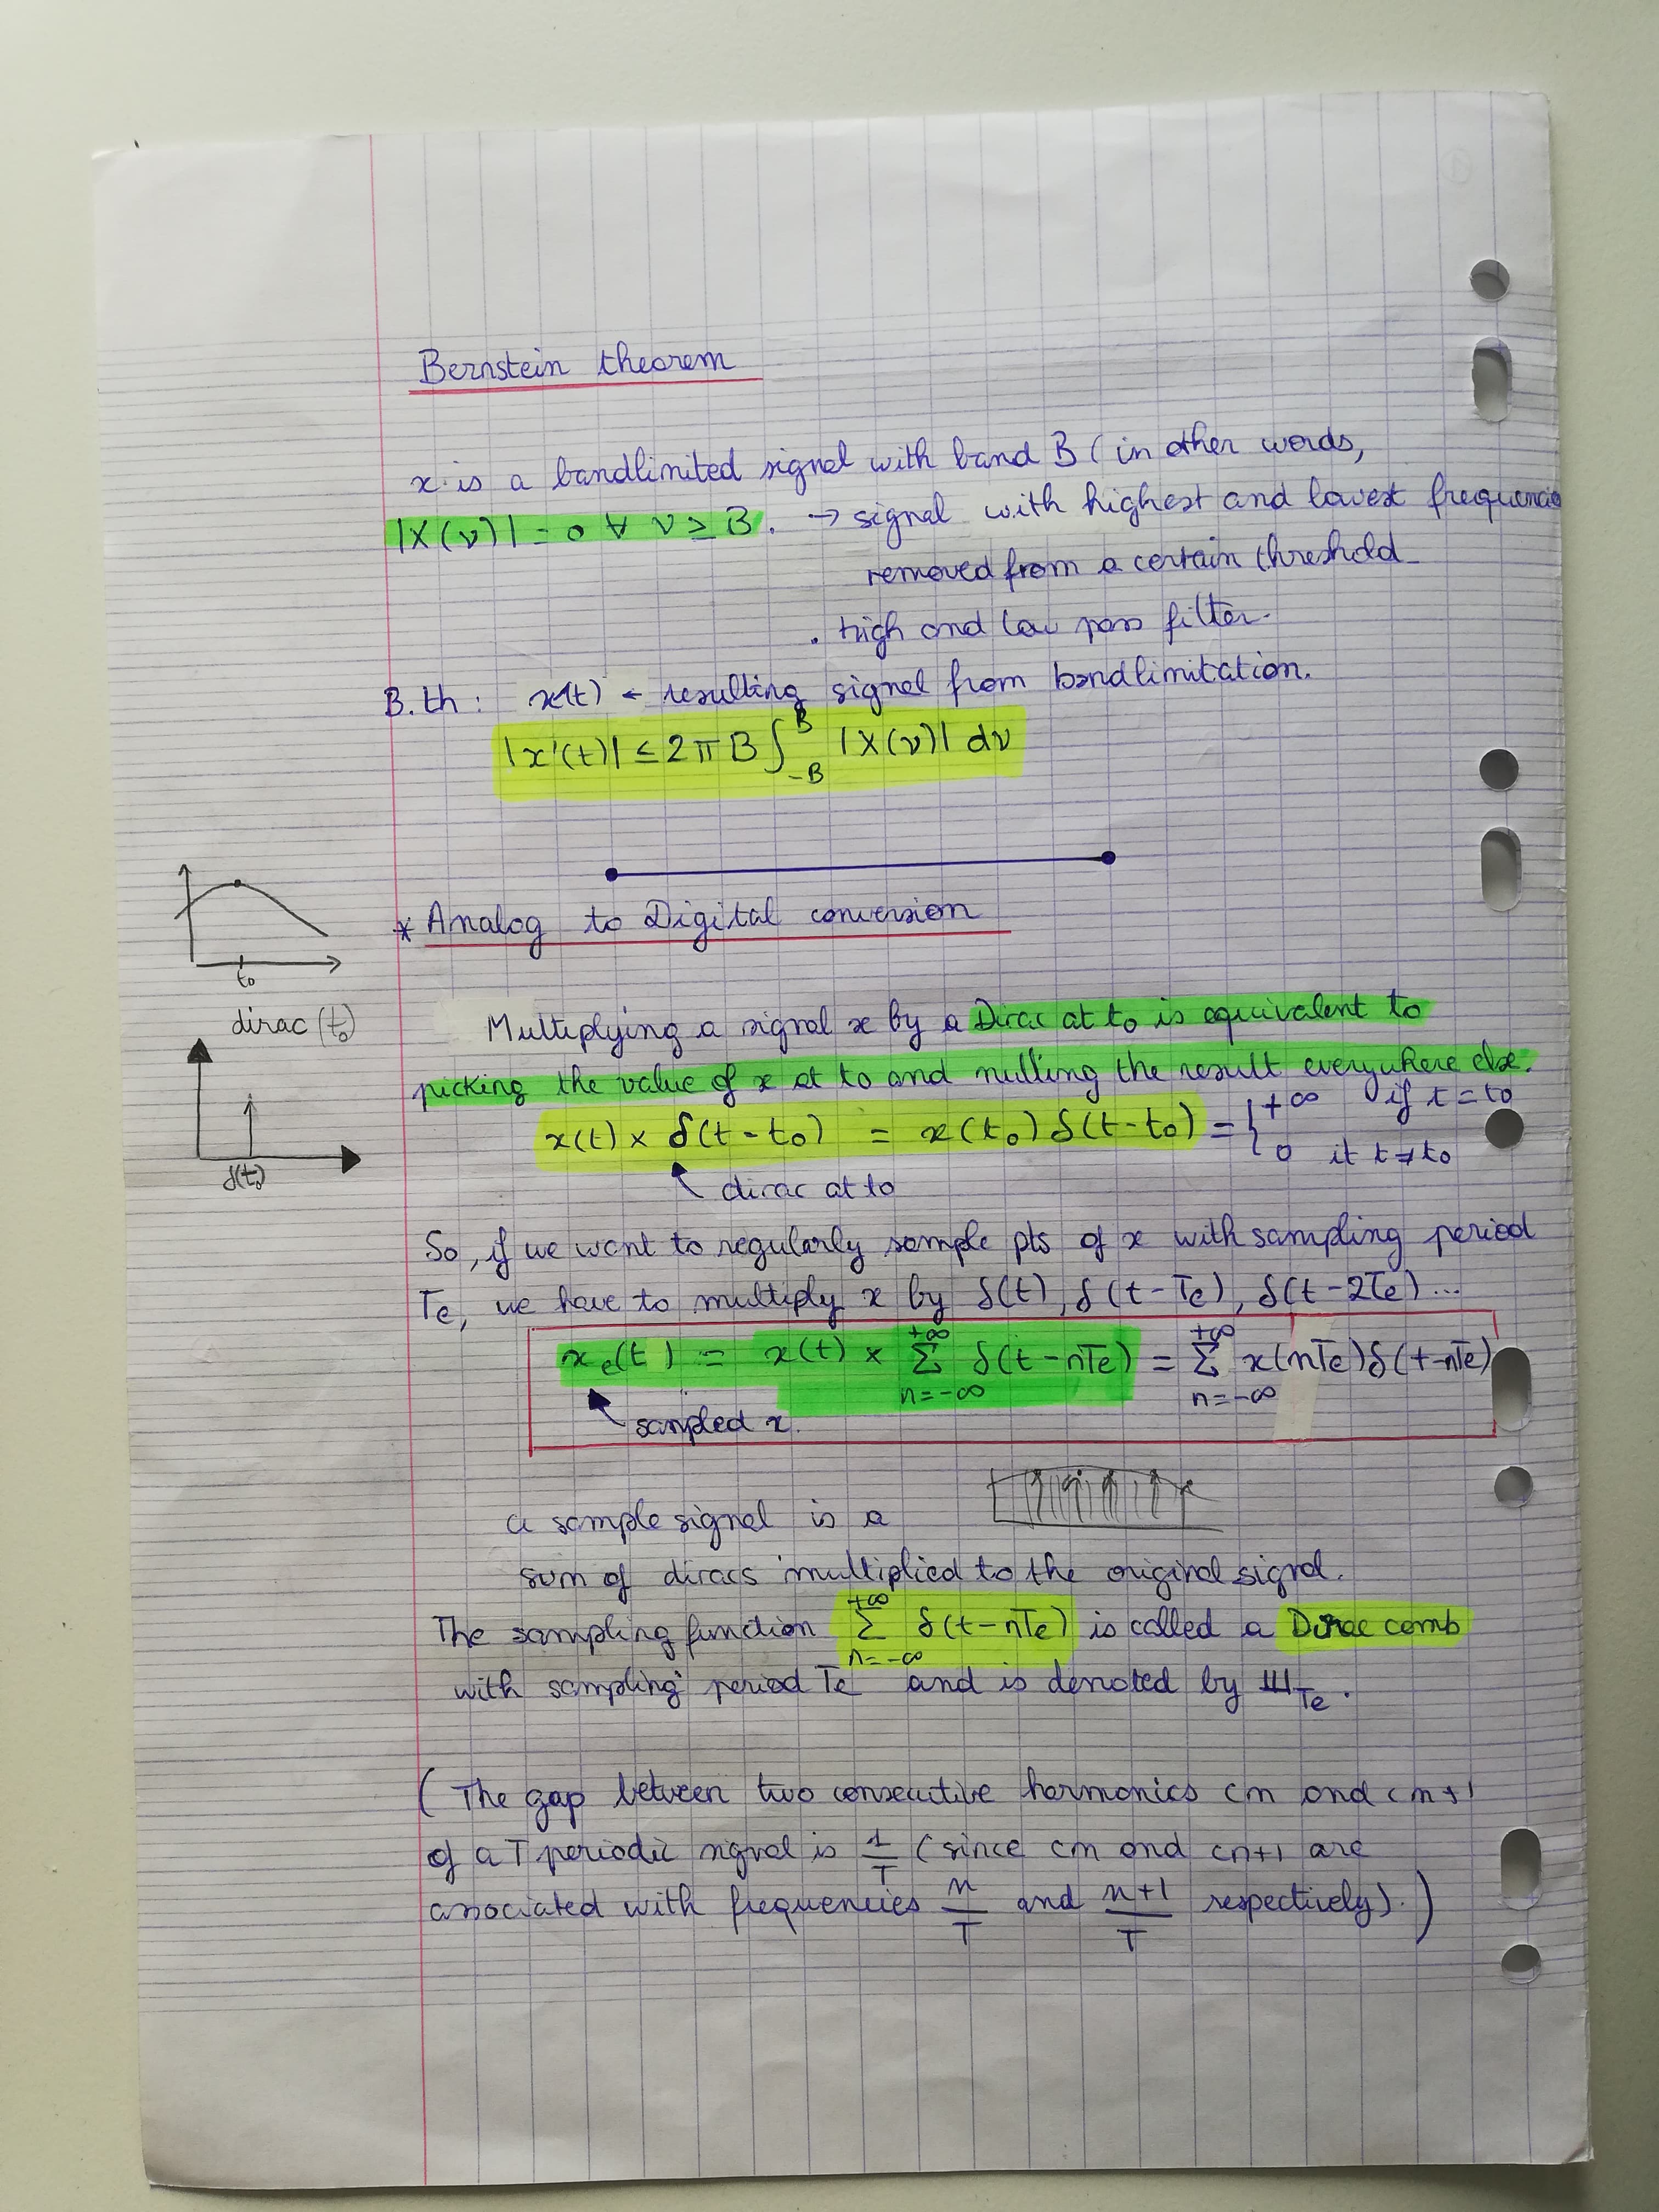 Bernstein theorem
x is a bandlimited signal with band B (in other words,
|X(ν)| = 0 ∀ ν ≥ B. → signal with highest and lowest frequencies
removed from a certain threshold
. high and low pass filter.
B.th : x(t) ← resulting signal from bandlimitation.
|x'(t)| ≤ 2πB ∫_{-B}^{B} |X(ν)| dν
* Analog to Digital conversion
t0
dirac (t0)
δ(t0)
Multiplying a signal x by a Dirac at t0 is equivalent to
picking the value of x at t0 and nulling the result everywhere else.
x(t) × δ(t - t0) = x(t0) δ(t-t0) = { +∞ if t = t0
0 if t ≠ t0
dirac at t0
So, if we want to regularly sample pts of x with sampling period
Te, we have to multiply x by δ(t), δ(t-Te), δ(t-2Te)...
xe(t) = x(t) × Σ_{n=-∞}^{+∞} δ(t-nTe) = Σ_{n=-∞}^{+∞} x(nTe)δ(t-nTe)
sampled x.
a sample signal is a
sum of diracs multiplied to the original signal.
The sampling function Σ_{n=-∞}^{+∞} δ(t-nTe) is called a Dirac comb
with sampling period Te and is denoted by Ш_Te.
(The gap between two consecutive harmonics cn and cn+1
of a T periodic signal is 1/T (since cn and cn+1 are
associated with frequencies n/T and n+1/T respectively).)